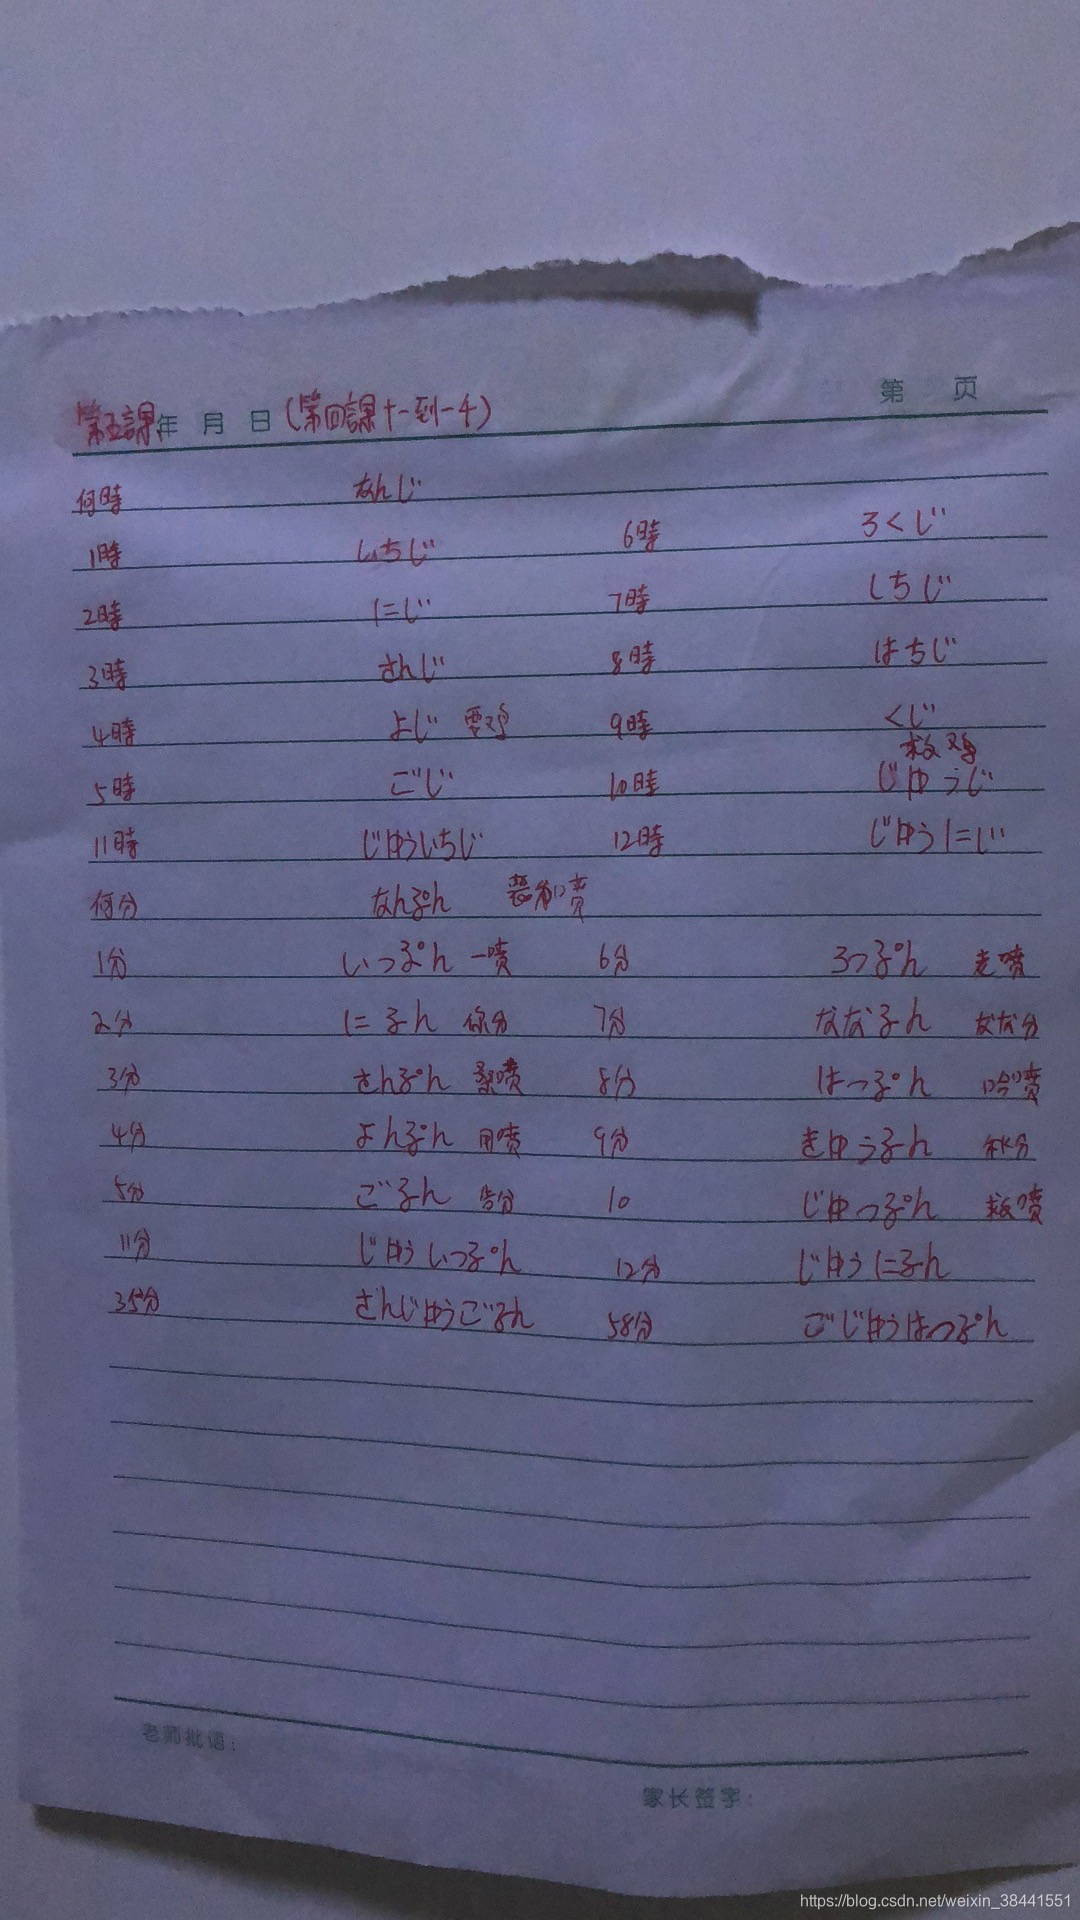 第 页
第五課年 月 日(第四課十一到一千)
何時 なんじ
1時 いちじ 6時 ろくじ
2時 にじ 7時 しちじ
3時 さんじ 8時 はちじ
4時 よじ 要鸡 9時 くじ
救鸡
5時 ごじ 10時 じゅうじ
11時 じゅういちじ 12時 じゅうにじ
何分 なんぷん
1分 いっぷん 一喷 6分 ろっぷん 老喷
2分 にふん 你分 7分 ななふん なな分
3分 さんぷん 桑喷 8分 はっぷん 哈喷
4分 よんぷん 用喷 9分 きゅうふん 秋分
5分 ごふん 告分 10 じゅっぷん 救喷
11分 じゅういっぷん 12分 じゅうにふん
35分 さんじゅうごふん 58分 ごじゅうはっぷん
老师批语:
家长签字:
https://blog.csdn.net/weixin_38441551